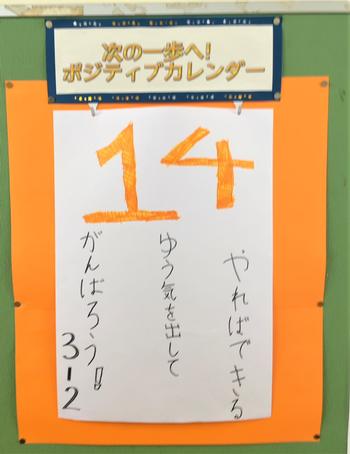 次の一歩へ!
ポジティブカレンダー
14
やればできる
ゆう気を出して
がんばろう!
3-2